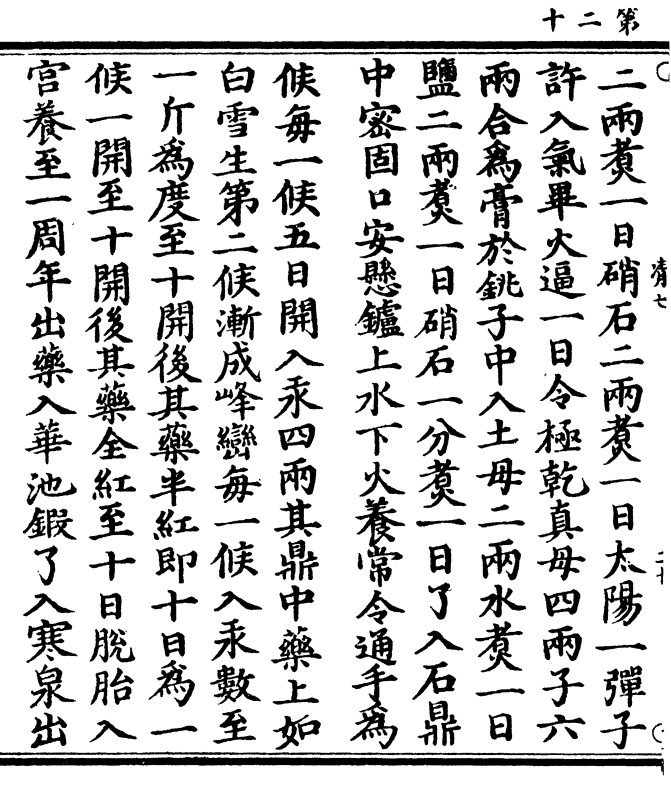 第二十
二兩煑一日硝石二兩煑一日太陽一彈子
許入氣畢火逼一日令極乾真母四兩子六
兩合爲膏於銚子中入土母二兩水煑一日
鹽二兩煑一日硝石一分煑一日了入石鼎
中密固口安懸鑪上水下火養常令通手爲
候每一候五日開入汞四兩其鼎中藥上如
白雪生第二候漸成峰巒每一候入汞數至
一斤爲度至十開後其藥半紅即十日爲一
候一開至十開後其藥全紅至十日脫胎入
宫養至一周年出藥入華池鍜了入寒泉出
二十